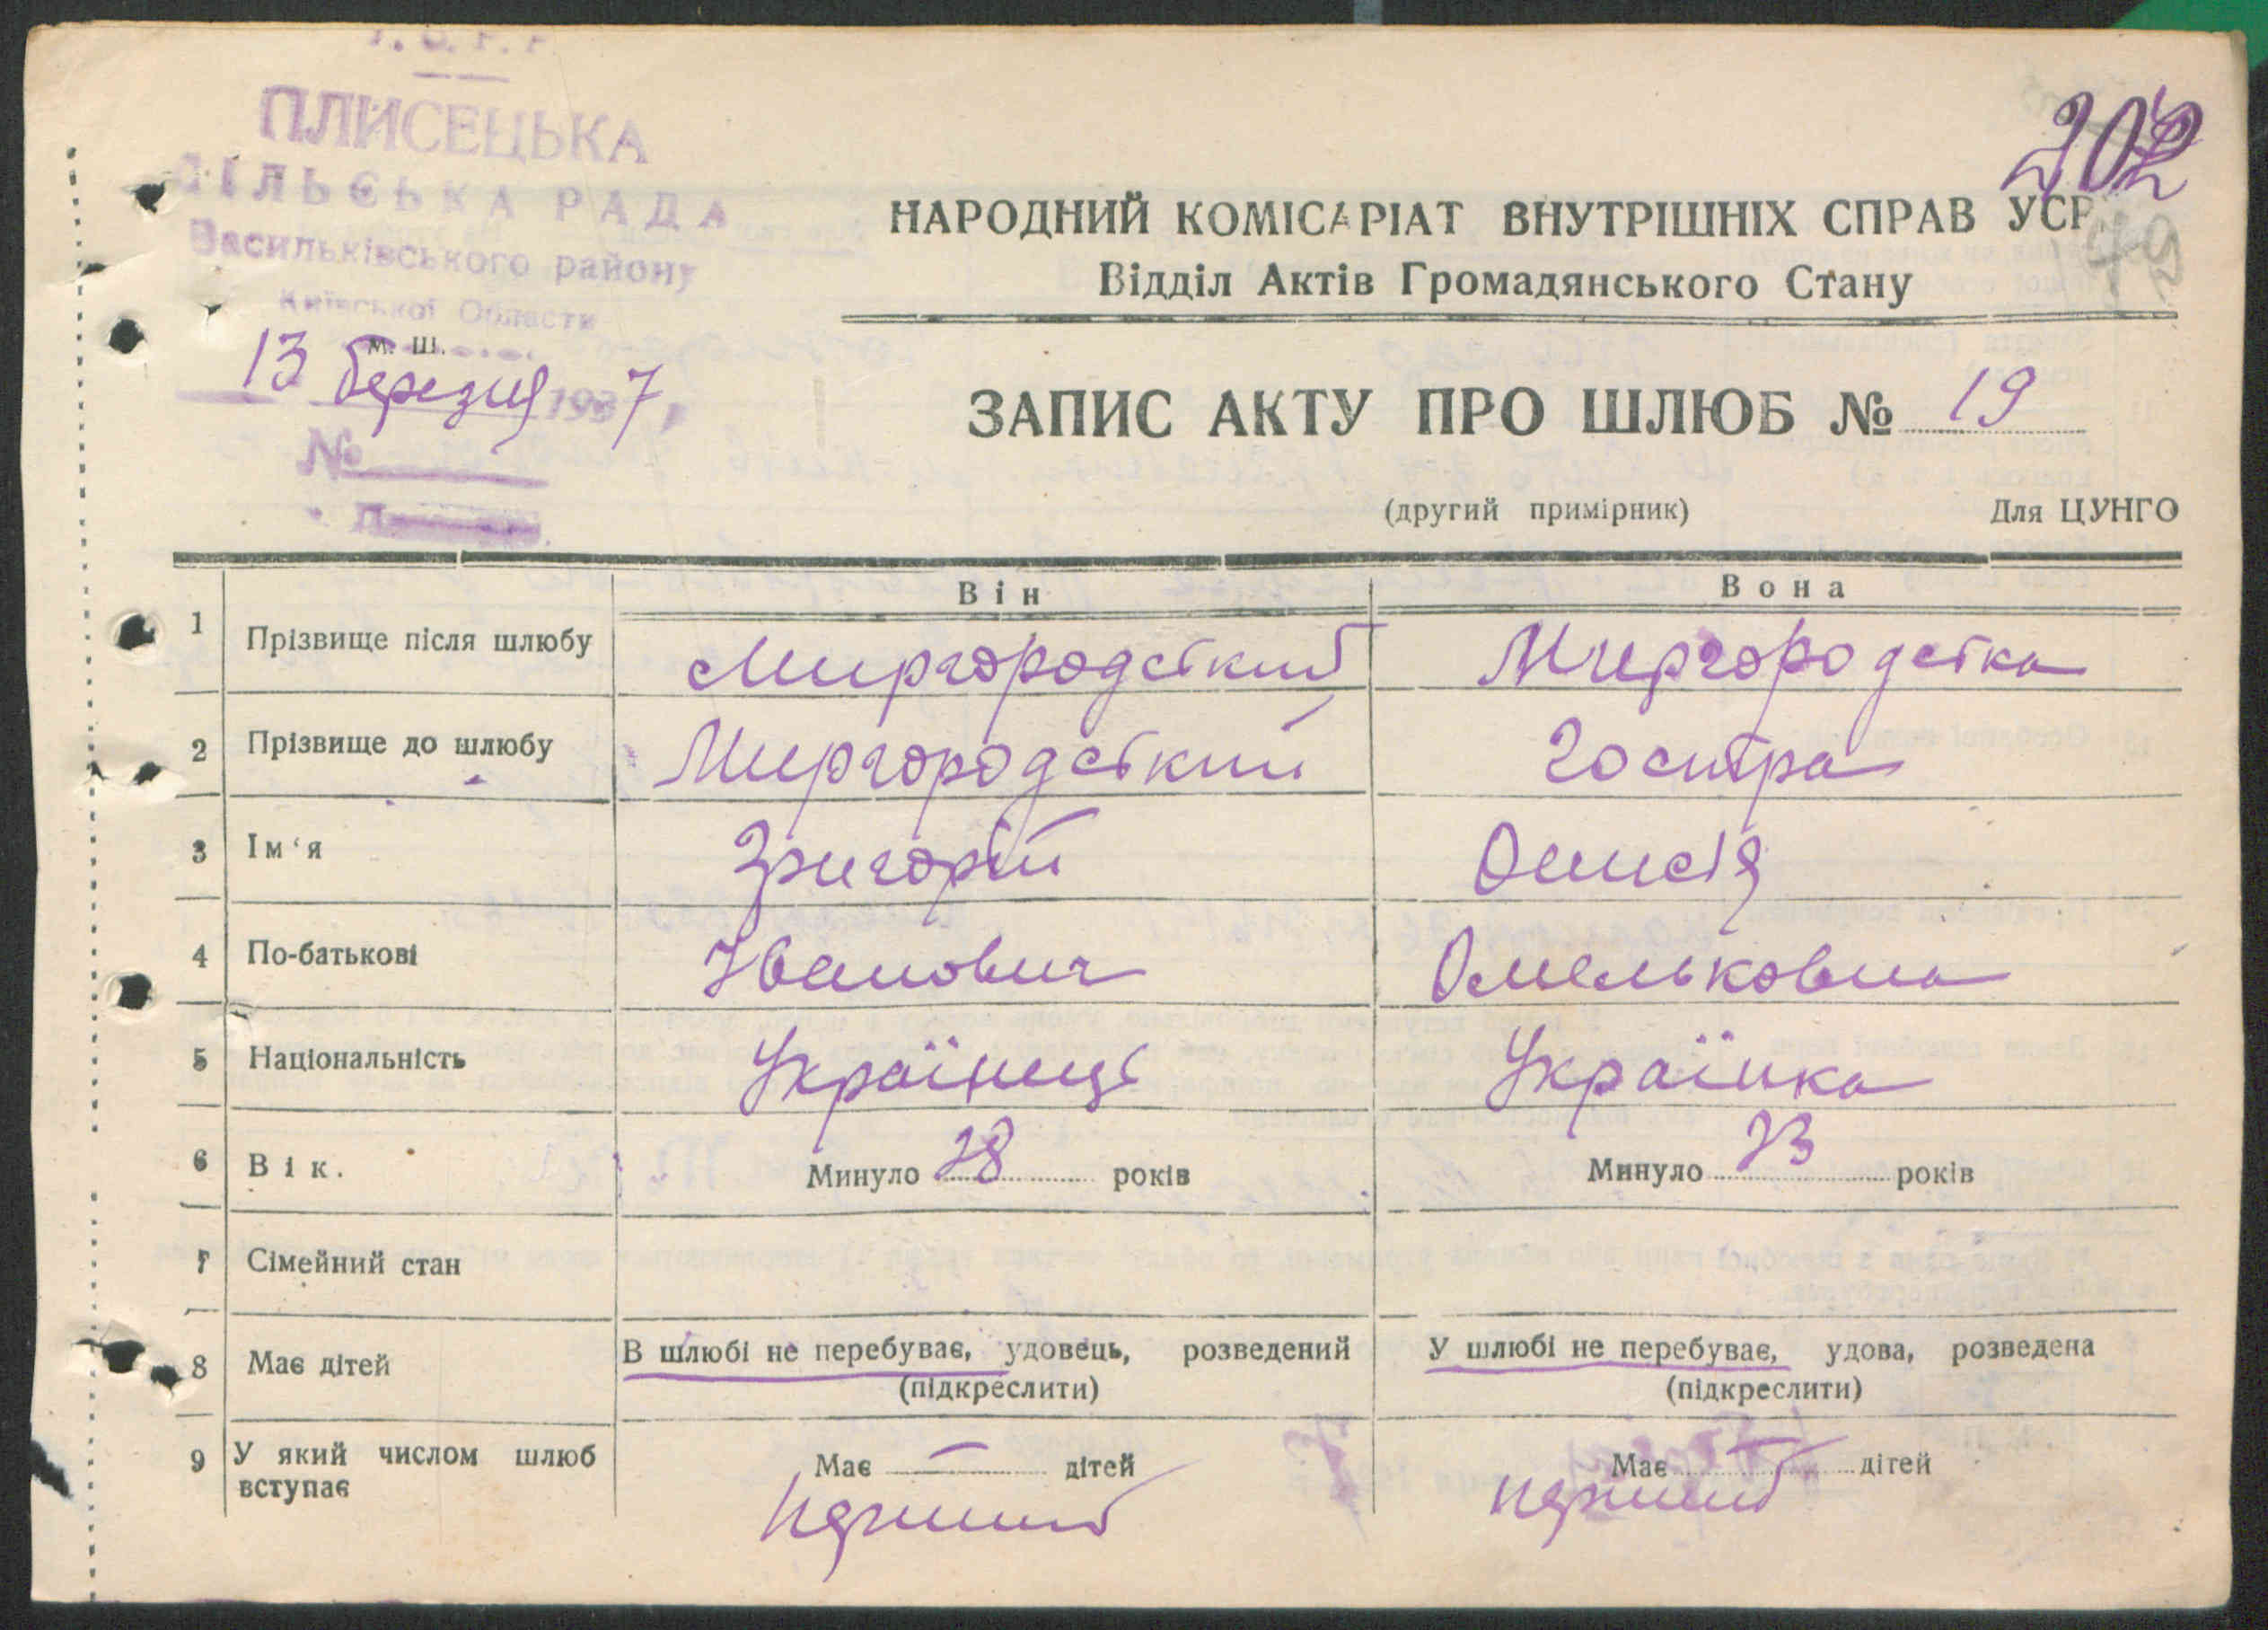 ПЛИСЕЦЬКА
СІЛЬСЬКА РАДА
Васильківського району
Київської Области
м. ш.
13 березня 1937
№
202
НАРОДНИЙ КОМІСАРІАТ ВНУТРІШНІХ СПРАВ УСР
Відділ Актів Громадянського Стану
ЗАПИС АКТУ ПРО ШЛЮБ № 19
(другий примірник) Для ЦУНГО
Він Вона
1 Прізвище після шлюбу Миргородський Миргородська
2 Прізвище до шлюбу Миргородський Гостра
3 Ім‘я Григорій
4 По-батькові Іванович Омельковна
5 Національність Українець Українка
6 Вік. Минуло 28 років Минуло 23 років
7 Сімейний стан
8 Має дітей В шлюбі не перебуває, удовець, розведений У шлюбі не перебуває, удова, розведена
(підкреслити) (підкреслити)
9 У який числом шлюб вступає Має — дітей Має — дітей
перший перший